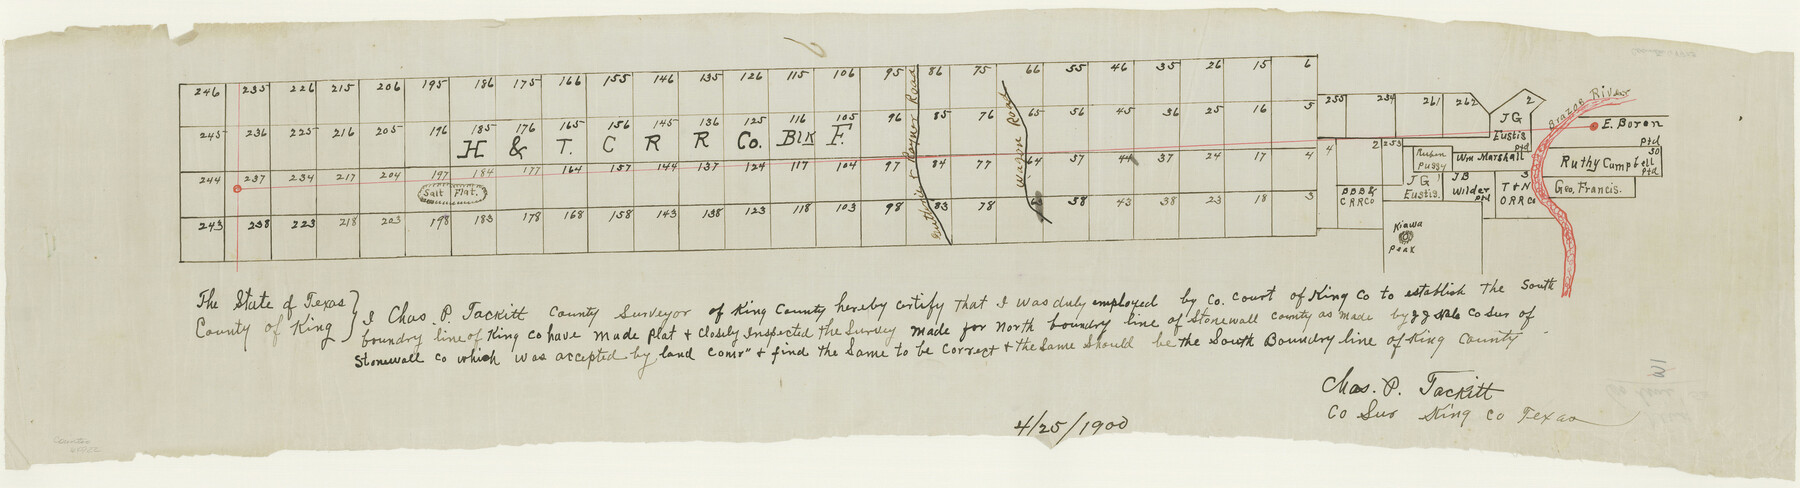 246 235 226 215 206 195 186 175 166 155 146 135 126 115 106 95 86 75 66 55 46 35 26 15 6
245 236 225 216 205 196 185 176 165 156 145 136 125 116 105 96 85 76 65 56 45 36 25 16 5
H & T. C R R Co. Blk F.
244 237 234 217 204 197 184 177 164 157 144 137 124 117 104 97 84 77 64 57 44 37 24 17 4
Salt Flat.
243 238 223 218 203 198 183 178 168 158 143 138 123 118 103 98 83 78 63 58 43 38 23 18 3
Guthrie & Rayner Road
Wagon Road
255 254 261 262 2
JG
Eustis
ptd
Brazos River
E. Boron
ptd
4 2 253
Ruben
Puggy
Wm Marshall
ptd
30
Ruthy Campbell
ptd
BBB&
CRRCo
JG 1
Eustis.
JB
Wilder
ptd
3
T & N
ORRCo
Geo. Francis.
Kiawa
Peak
The State of Texas
County of King
I Chas P. Tackitt County Surveyor of King County hereby certify that I was duly employed by Co. Court of King Co to establish The South
boundry line of King Co have Made Plat & Closely Inspected the Survey made for North boundry line of Stonewall County as made by JJ Co Sur of
Stonewall Co which was accepted by land Comr" & find the Same to be Correct & the Same Should be the South Boundry line of King County
Chas. P. Tackitt
Co Sur King Co Texas
4/25/1900
Counter